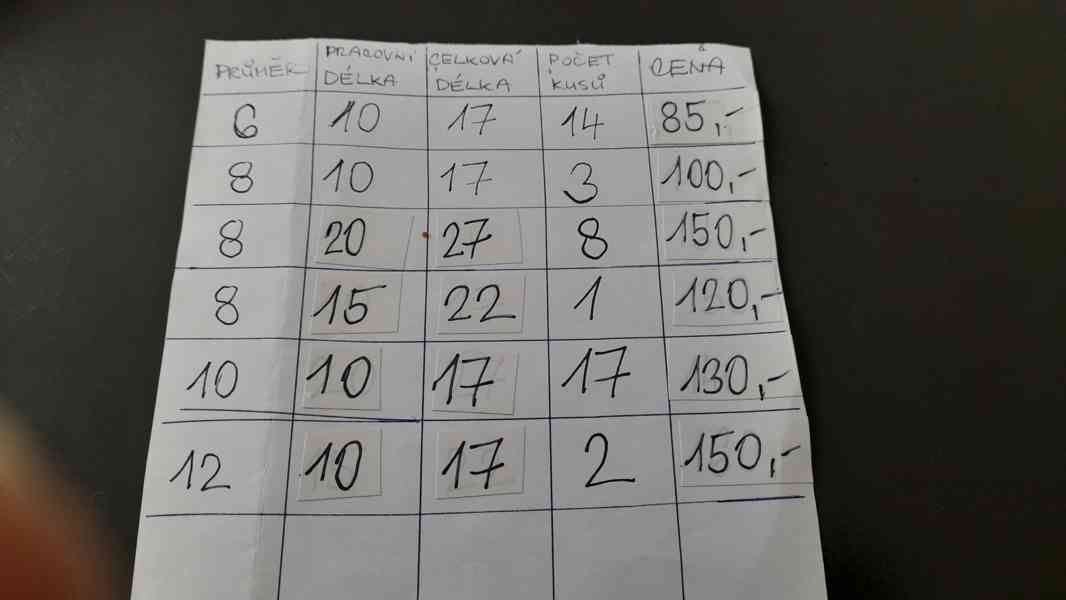 PRŮMĚR PRACOVNÍ DÉLKA CELKOVÁ DÉLKA POČET KUSŮ CENA
6 10 17 14 85,-
8 10 17 3 100,-
8 20 27 8 150,-
8 15 22 1 120,-
10 10 17 17 130,-
12 10 17 2 150,-